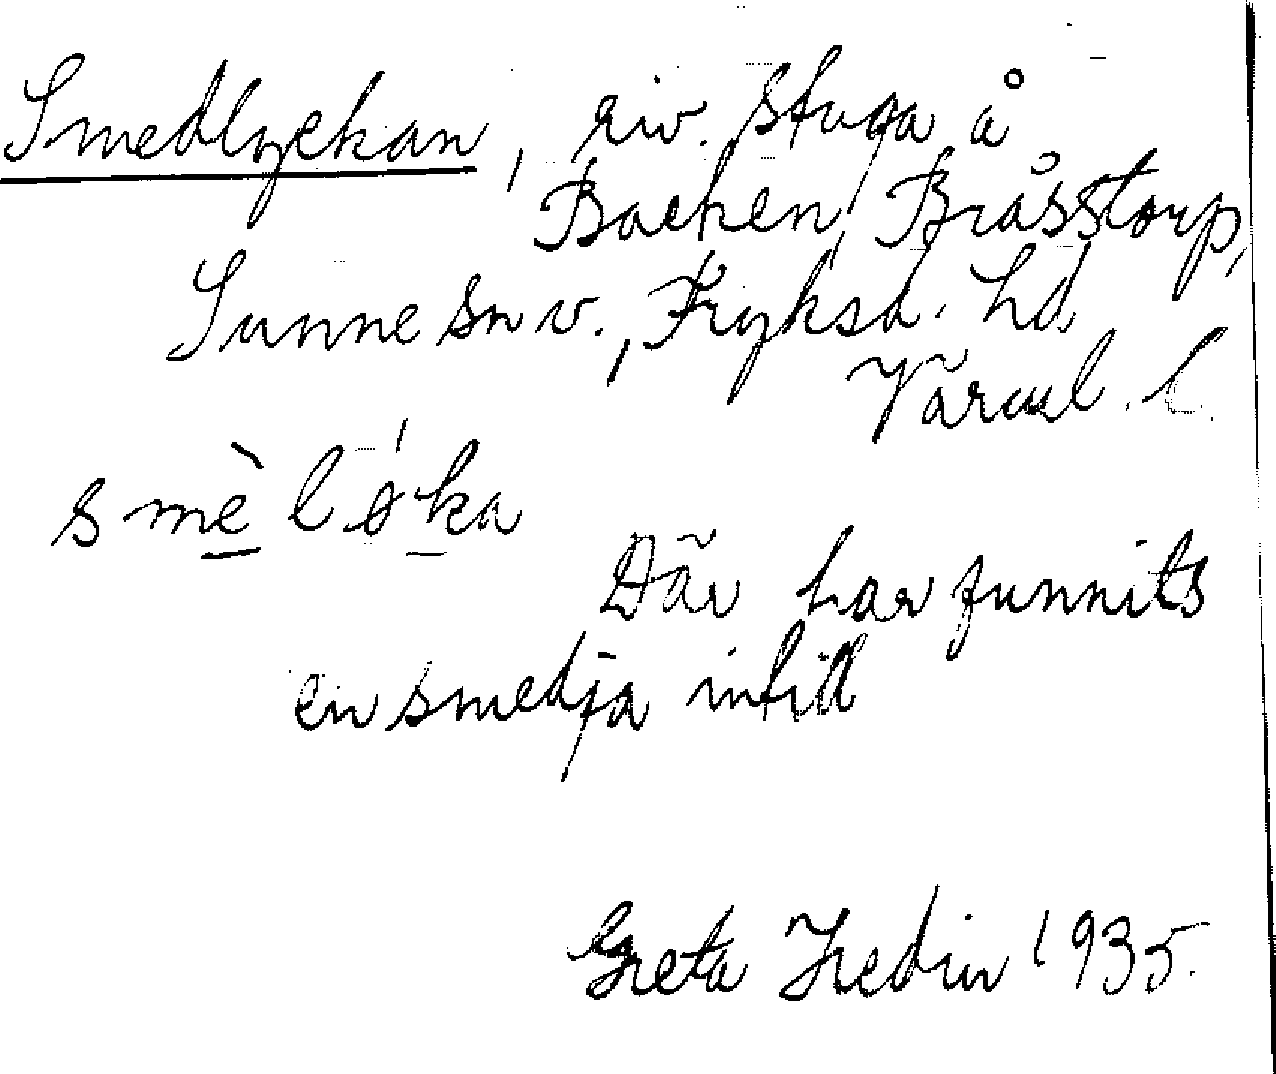 Smedlyckan, riv. stuga å
Backen, Bråstorp,
Sunne sn v., Fryksd. hd
Värml. l.
smè lø´ka
Där har funnits
en smedja intill
Greta Hedin 1935.